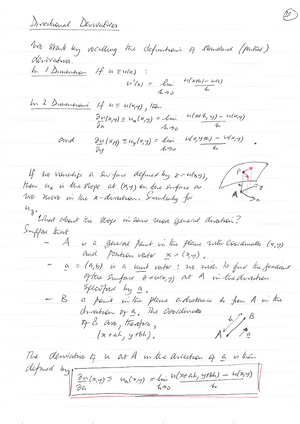 Directional Derivatives
We start by recalling the definitions of standard (partial)
derivatives.
In 1 Dimension If u ≡ u(x) :
u'(x) = lim h→0 (u(x+h) − u(x))/h
In 2 Dimensions If u ≡ u(x,y), then
∂u/∂x (x,y) ≡ uₓ(x,y) = lim h→0 (u(x+h, y) − u(x,y))/h
and ∂u/∂y (x,y) ≡ u_y(x,y) = lim h→0 (u(x,y+h) − u(x,y))/h .
If we visualise a surface defined by z = u(x,y),
then uₓ is the slope at (x,y) on the surface as
we move in the x-direction. Similarly for
u_y.
P
y
A
x
What about the slope in some more general direction?
Suppose that
- A is a general point in the plane with coordinates (x,y)
and position vector x = (x,y).
- a = (a,b) is a unit vector : we wish to find the gradient
of the surface z = u(x,y) at A in the direction
specified by a.
- B a point in the plane a distance h from A in the
direction of a. The coordinates
of B are, therefore,
(x+ah, y+bh).
h
B
A
a
The derivative of u at A in the direction of a is then
defined by ∂u/∂a (x,y) ≡ uₐ(x,y) = lim h→0 (u(x+ah, y+bh) − u(x,y))/h